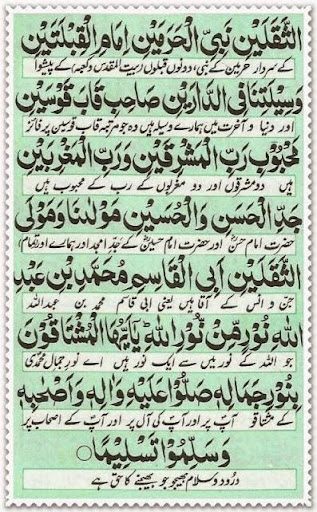 الثَّقَلَيْنِ نَبِيِّ الْحَرَمَيْنِ اِمَامِ الْقِبْلَتَيْنِ
کے سردار حرمین کے نبی، دونوں قبلوں (بیت المقدس و کعبہ) کے پیشوا
وَسِيْلَتِنَا فِي الدَّارَيْنِ صَاحِبِ قَابَ قَوْسَيْنِ
اور دنیا و آخرت میں ہمارے وسیلہ ہیں وہ جو مرتبہ قاب قوسین پر فائز
مَحْبُوْبِ رَبِّ الْمَشْرِقَيْنِ وَرَبِّ الْمَغْرِبَيْنِ
ہیں دو مشرقوں اور دو مغربوں کے رب کے محبوب ہیں
جَدِّ الْحَسَنِ وَالْحُسَيْنِ مَوْلٰنَا وَمَوْلَى
حضرت امام حسنؓ اور حضرت امام حسینؓ کے جد امجد اور ہمارے اور (تمام)
الثَّقَلَيْنِ اَبِي الْقَاسِمِ مُحَمَّدِ بْنِ عَبْدِ
جن و انس کے آقا ہیں یعنی ابی قاسم محمد بن عبداللہ
اللهِ نُوْرٍ مِّنْ نُّوْرِ اللهِ ؕ يٰٓاَيُّهَا الْمُشْتَاقُوْنَ
جو اللہ کے نور میں سے ایک نور ہیں اے نورِ جمالِ محمدی
بِنُوْرِ جَمَالِهٖ صَلُّوْا عَلَيْهِ وَاٰلِهٖ وَاَصْحَابِهٖ
کے مشتاقو آپؐ پر اور آپؐ کی آل پر اور آپؐ کے اصحاب پر
وَسَلِّمُوْا تَسْلِيْمًا ○
درود و سلام بھیجو جو بھیجنے کا حق ہے